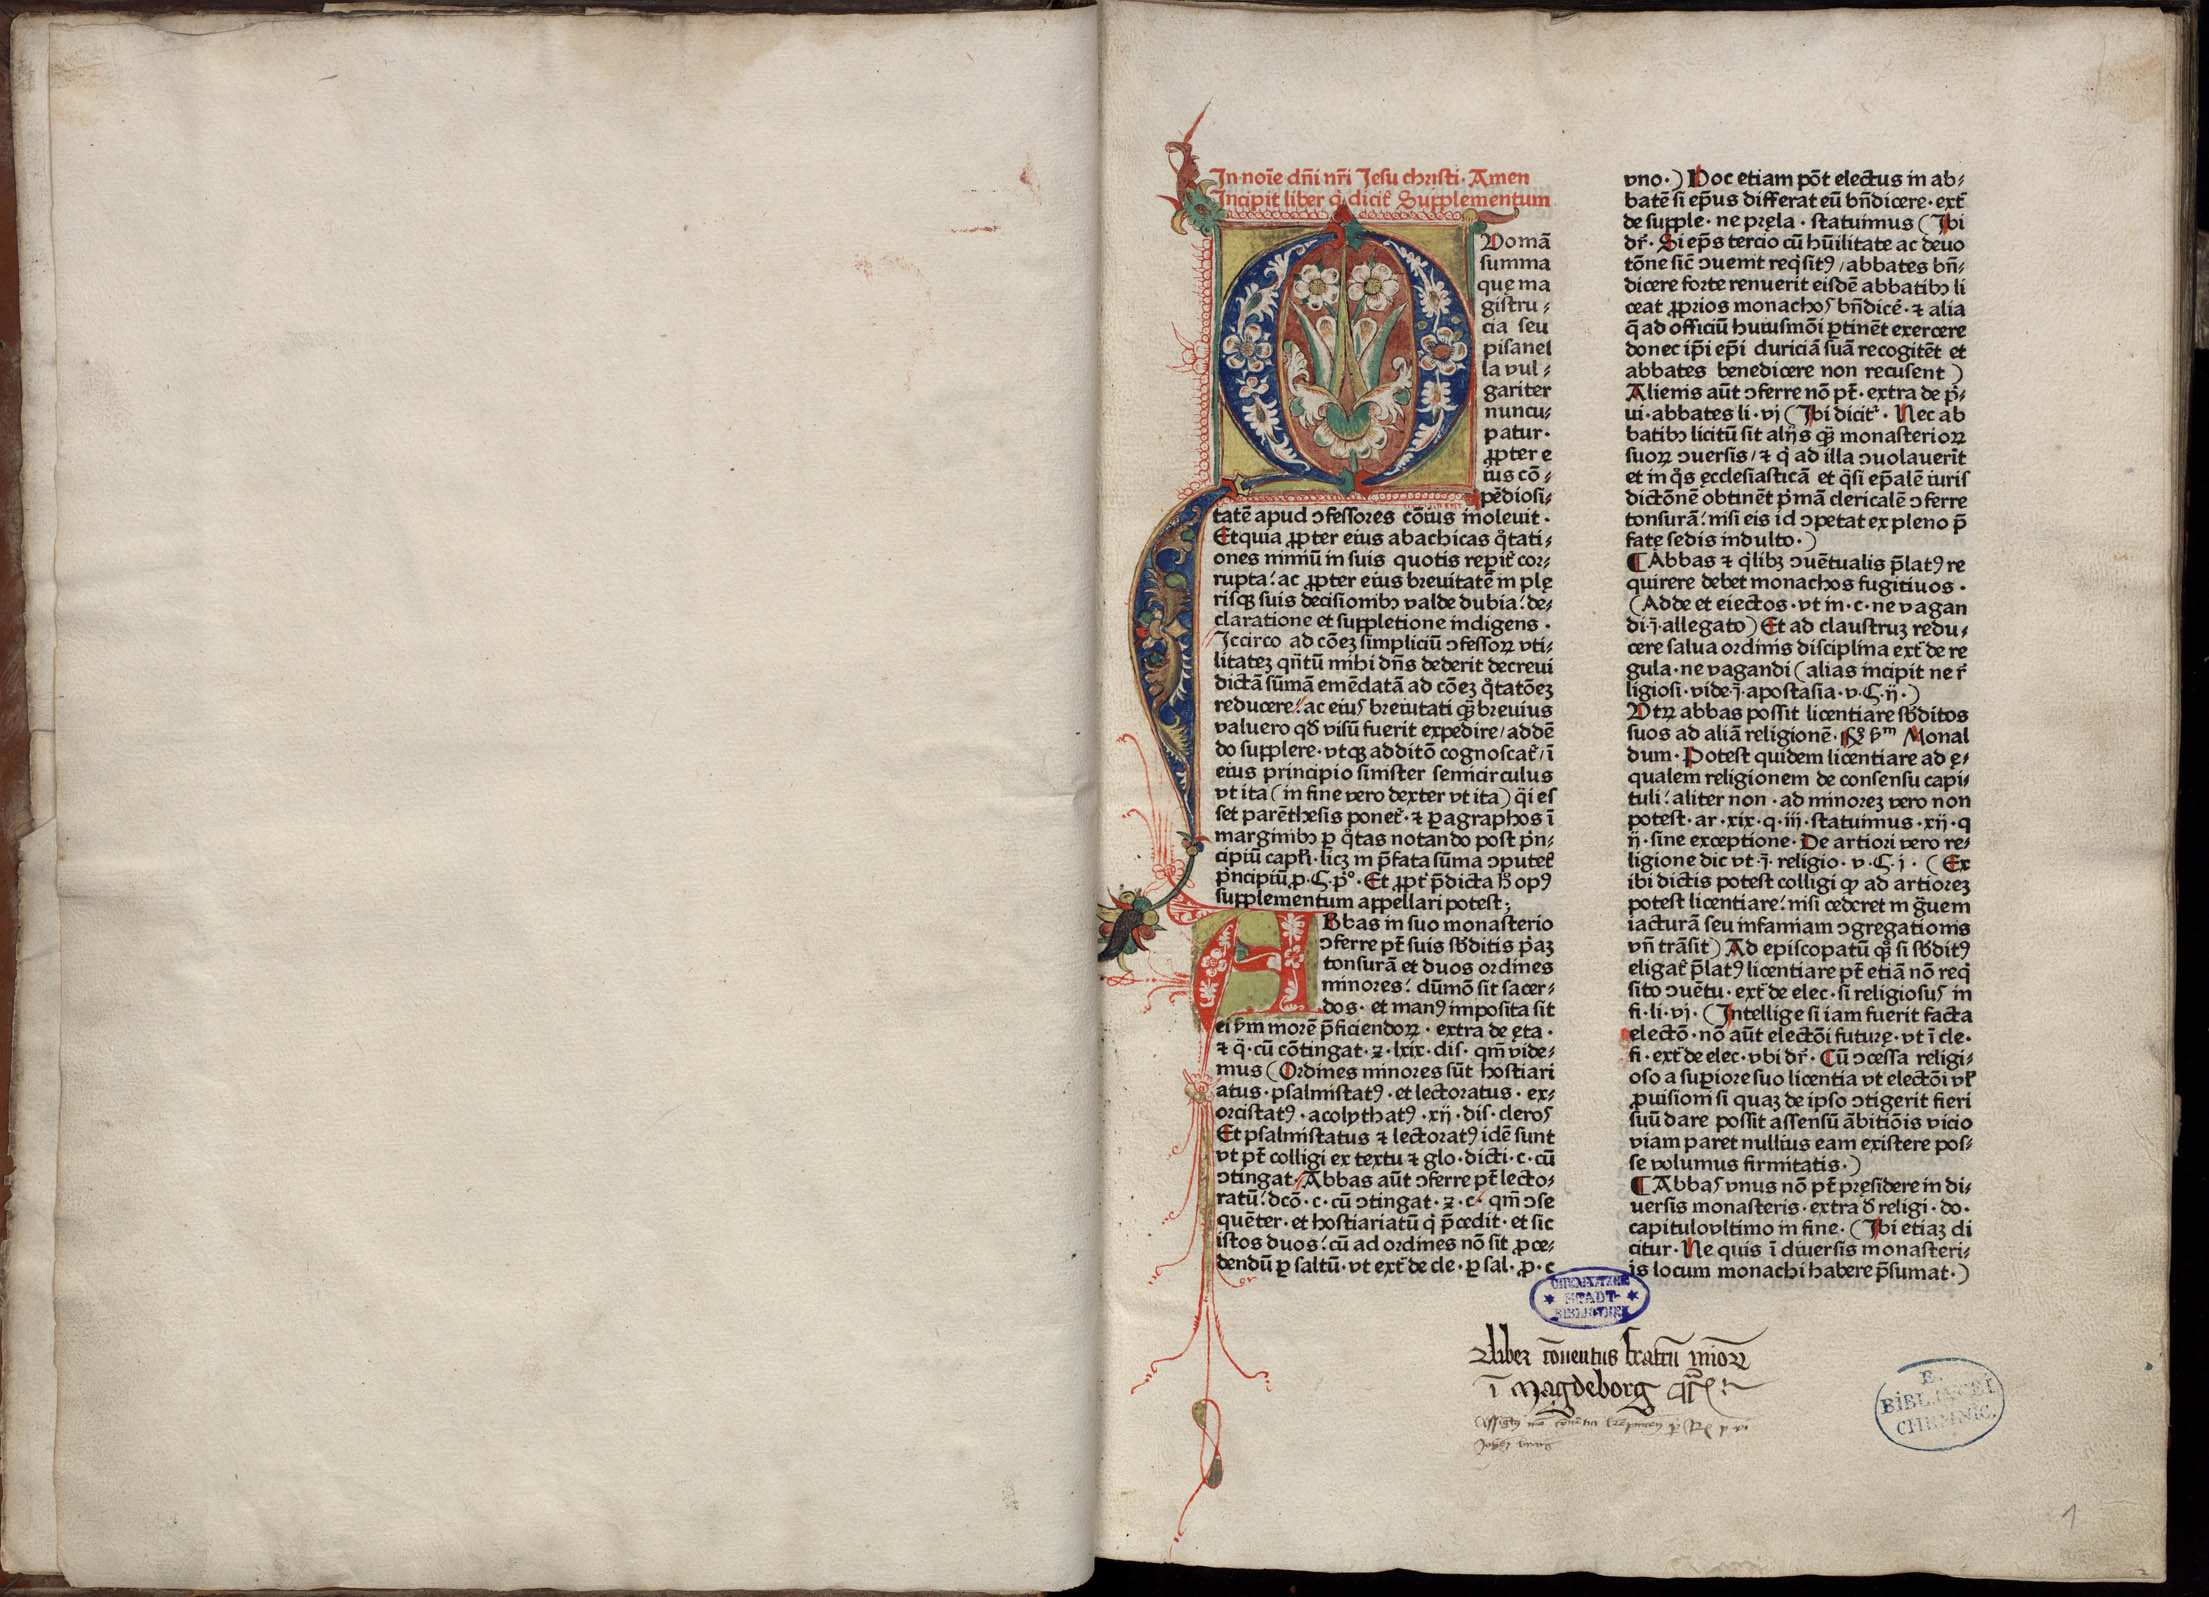 In noīe dn̄i nr̄i Jesu christi· Amen
Incipit liber q̇ dicit᷑ Supplementum
Uomā
summa
quę ma
gistru⸗
cia seu
pisanel
la vul⸗
gariter
nuncu⸗
patur·
ꝓpter e
ius cō⸗
pēdiosi⸗
tatē apud ↄfessores cōius inoleuit·
Et quia ꝓpter eius abachicas q̊tati⸗
ones nimiū in suis quotis reꝑit᷑ cor⸗
rupta: ac ꝓpter eius breuitatē in plę
risqꝫ suis decisionibꝫ valde dubia: de⸗
claratione et suppletione indigens·
Iccirco ad cōeꝫ simpliciū ↄfessoꝝ vti⸗
litateꝫ qn̄tū mihi dn̄s dederit decreui
dictā sūmā emēdatā ad cōeꝫ q̊tatōeꝫ
reducere: ac eius breuitati qꝫ breuius
valuero qđ visū fuerit expedire/addē
do supplere· vtqꝫ additō cognoscat᷑/ī
eius principio sinister semicirculus
vt ita ( in fine vero dexter vt ita ) q̈i es
set parēthesis ponet᷑· ⁊ ꝑagraphos ī
marginibꝫ ꝑ q̊tas notando post pͥn⸗
cipiū capl̄i· licꝫ in p̄fata sūma ↄputet᷑
pͥncipiū ꝓ·§·pͦ· Et ꝓpt᷑ p̄dicta h̊ opꝰ
supplementum appellari potest;
ABbas in suo monasterio
ↄferre pt̄ suis sb̄ditis pͥaꝫ
tonsurā et duos ordines
minores: dūmō sit sacer⸗
dos· et manꝰ imposita sit
ei ẜm morē p̄ficiendoꝝ· extra de ęta·
⁊ q̈· cū cōtingat· ⁊· lxix· dis· qm̄ vide⸗
mus ( Ordines minores sūt hostiari
atus· psalmistatꝰ· et lectoratus· ex⸗
orcistatꝰ· acolythatꝰ· xij· dis· cleros
Et psalmistatus ⁊ lectoratꝰ idē sunt
vt pt̄ colligi ex textu ⁊ glo· dicti·c·cū
ↄtingat· Abbas aūt ↄferre pt̄ lecto⸗
ratū: dcō·c·cū ↄtingat·⁊·c· qm̄ ↄse
quēter· et hostiariatū q̇ p̄cedit· et sic
istos duos: cū ad ordines nō sit ꝓce⸗
dendū ꝑ saltū· vt ext᷑ de cle· ꝑ sal· ꝓ· c
vno· ) Hoc etiam pōt electus in ab⸗
batē si ep̄us differat eū bn̄dicere· ext᷑
de supple· ne pręla· statuimus ( Ibi
dr̄· Si ep̄s tercio cū hūilitate ac deuo
tōne sic̄ ↄuenit reqͥsitꝰ/abbates bn̄⸗
dicere forte renuerit eisdē abbatibꝫ li
ceat ꝓprios monachos bn̄dicē· ⁊ alia
q̄ ad officiū huiusmōi ꝑtinēt exercere
donec ip̄i ep̄i duriciā suā recogitēt et
abbates benedicere non recusent )
Alienis aūt ↄferre nō pt̄· extra de pͥ⸗
ui·abbates li·vj ( Ibi dicit᷑· Nec ab
batibꝫ licitū sit alijs qꝫ̄ monasterioꝝ
suoꝝ ↄuersis/⁊ q̇ ad illa ↄuolauerīt
et in q̊s ecclesiasticā et q̈si ep̄alē iuris
dictōnē obtinēt pͥmā clericalē ↄferre
tonsurā: nisi eis id ↄpetat ex pleno p̄
fatę sedis indulto· )
¶ Abbas ⁊ qͥlibꝫ ↄuētualis p̄latꝰ re
quirere debet monachos fugitiuos·
( Adde et eiectos· vt in·c·ne vagan
di·ī·allegato ) Et ad claustruꝫ redu⸗
cere salua ordinis disciplina ext᷑ de re
gula·ne vagandi ( alias incipit ne r̄
ligiosi·vide·ī·apostasia·v·§·ij· )
Utꝝ abbas possit licentiare sb̄ditos
suos ad aliā religionē· ẜm Monal
dum· Potest quidem licentiare ad ę⸗
qualem religionem de consensu capi⸗
tuli: aliter non· ad minoreꝫ vero non
potest· ar·xix·q·iij·statuimus·xij·q
ij·sine exceptione· De artiori vero re⸗
ligione dic vt·ī·religio·v·§·j· ( Ex
ibi dictis potest colligi ꝙ ad artioreꝫ
potest licentiare: nisi cederet in g̈uem
iacturā seu infamiam ↄgregationis
vn̄ trāsit ) Ad episcopatū qꝫ si sb̄ditꝰ
eligat᷑ p̄latꝰ licentiare pt̄ etiā nō reqͥ
sito ↄuētu· ext᷑ de elec·si religiosus in
fi·li·vj· ( Intellige si iam fuerit facta
electō· nō aūt electōi futurę· vt ī cle·
fi·ext᷑ de elec·vbi dr̄· Cū ↄcessa religi⸗
oso a suꝑiore suo licentia vt electōi vl᷑
ꝓuisioni si quaꝫ de ipso ↄtigerit fieri
suū dare possit assensū ābitiōis vicio
viam paret nullius eam existere pos⸗
se volumus firmitatis· )
¶ Abbas vnus nō pt̄ pręsidere in di⸗
uersis monasteris· extra đ religi· do·
capitulo vltimo in fine· ( Ibi etiaꝫ di
citur· Ne quis ī diuersis monasteri⸗
is locum monachi habere p̄sumat· )
CHEMNITZER
STADT-
BIBLIOTHEK
Liber cōuentus fratrū mīoꝝ
ī Magdeborg
E.
BIBLIOTH.
CHEMNIC.
1